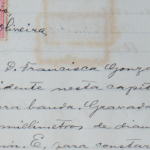 Oliveira.
D. Francisca Gonza
idente nesta capit
ara banda. Gravada
millimetros de diam
E, para constar